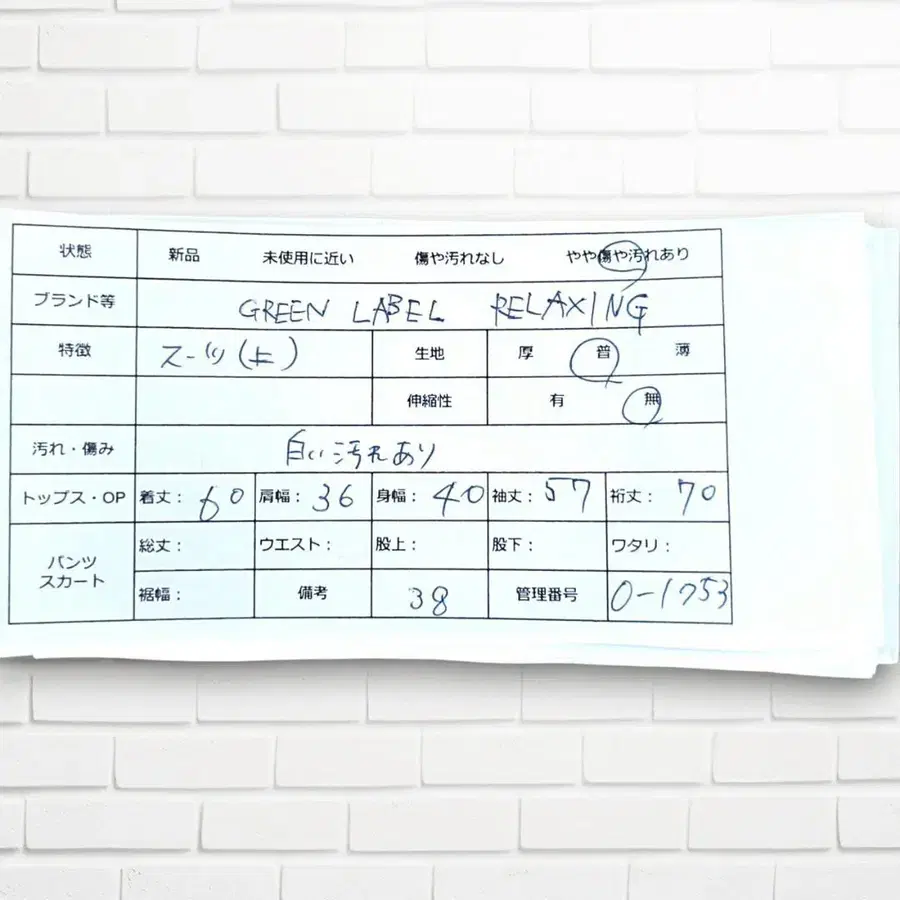 状態 新品 未使用に近い 傷や汚れなし やや傷や汚れあり
ブランド等 GREEN LABEL RELAXING
特徴 スーツ(上) 生地 厚 普 薄
伸縮性 有 無
汚れ・傷み 白い汚れあり
トップス・OP 着丈： 60 肩幅： 36 身幅： 40 袖丈： 57 裄丈： 70
パンツ
スカート
総丈： ウエスト： 股上： 股下： ワタリ：
裾幅： 備考 38 管理番号 0-1753